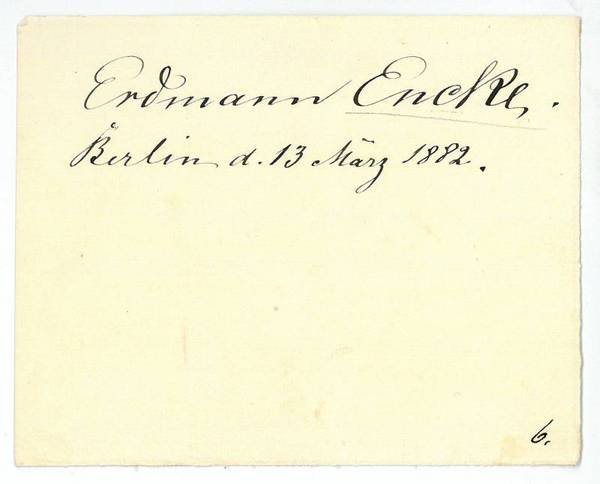 Erdmann Encke.
Berlin d. 13 März 1882.
6.